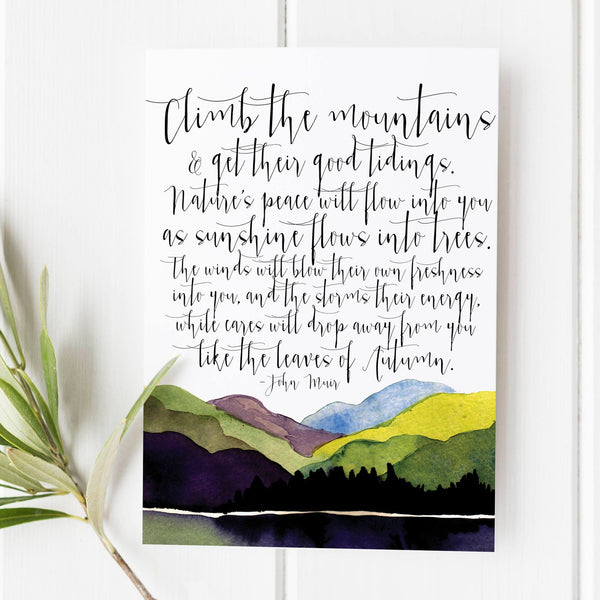 Climb the mountains
& get their good tidings.
Nature's peace will flow into you
as sunshine flows into trees.
The winds will blow their own freshness
into you, and the storms their energy,
while cares will drop away from you
like the leaves of Autumn.
-John Muir